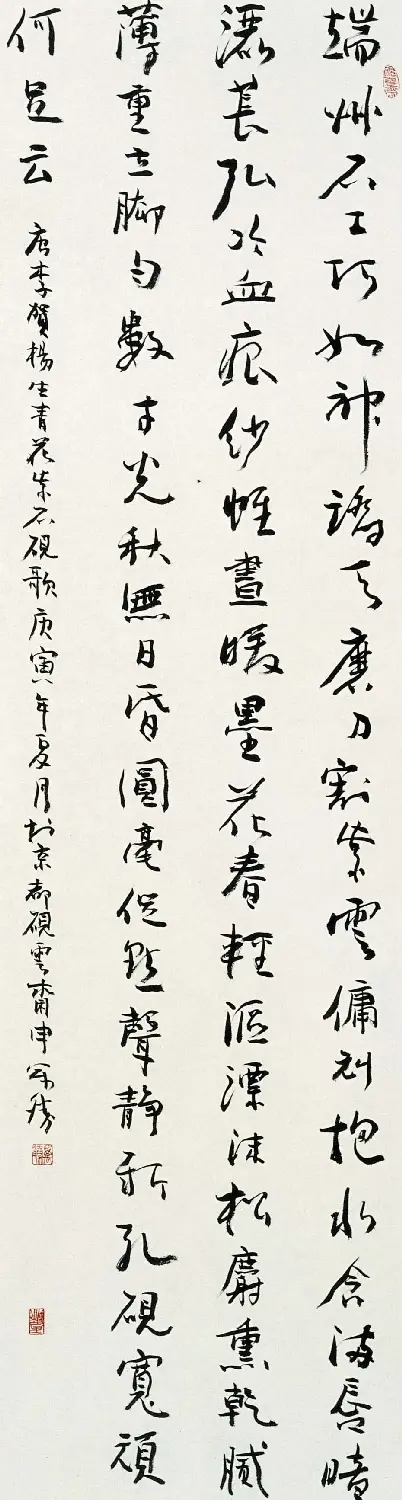 端州石工巧如神踏天磨刀割紫雲傭刓抱水含滿唇暗
灑萇弘冷血痕紗帷晝暖墨花春輕漚漂沫松麝熏乾膩
薄重立脚勻數寸光秋無日昏圓毫促點聲靜新孔硯寬頑
何足云
唐李賀楊生青花紫石硯歌庚寅年夏月於京都硯雲齋申